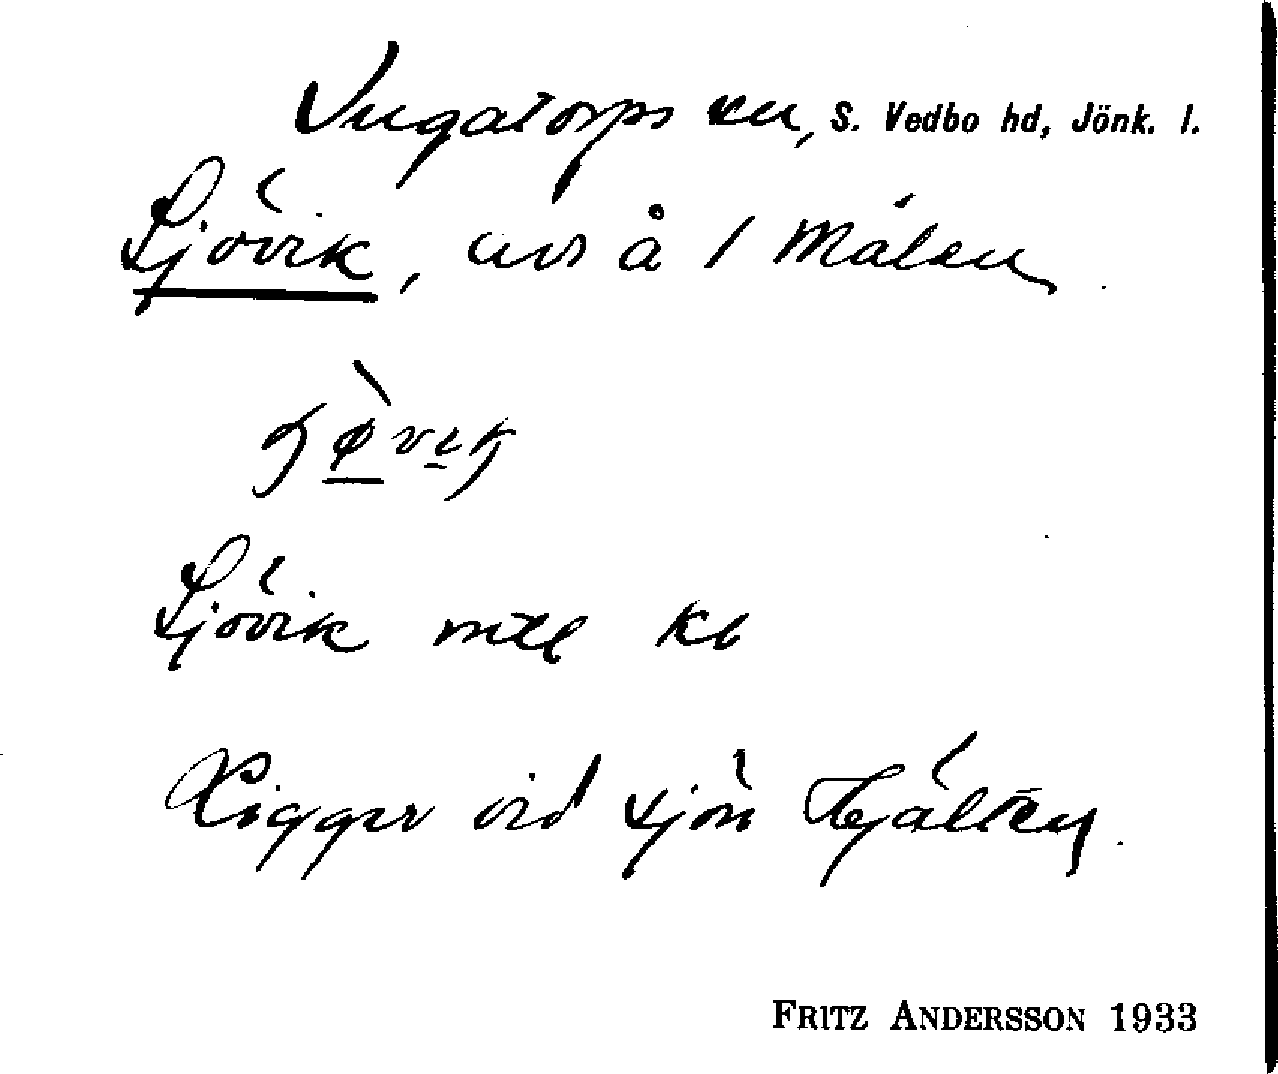 Ingatorps sn, S. Vedbo hd, Jönk. l.
Sjövik, avs å 1 Målen
Sjövik mtl kb
Ligger vid sjön Hjälten.
FRITZ ANDERSSON 1933